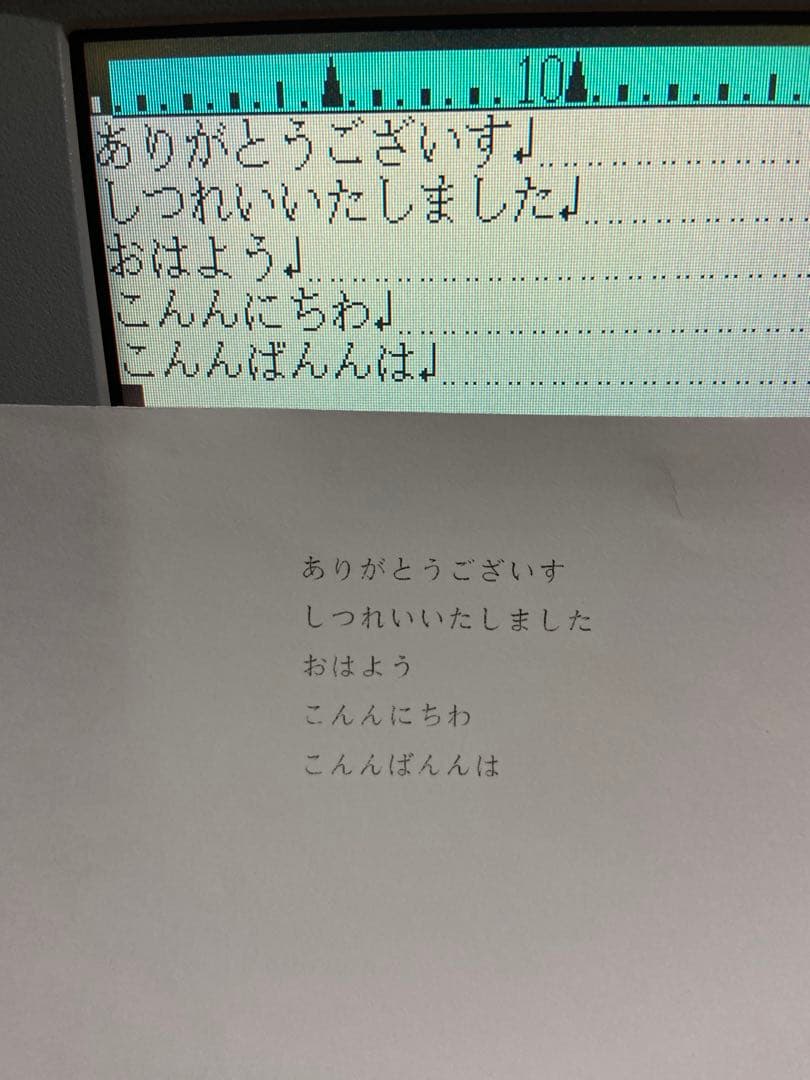 10
ありがとうございす↲
しつれいいたしました↲
おはよう↲
こんんにちわ↲
こんんばんんは↲
ありがとうございす
しつれいいたしました
おはよう
こんんにちわ
こんんばんんは